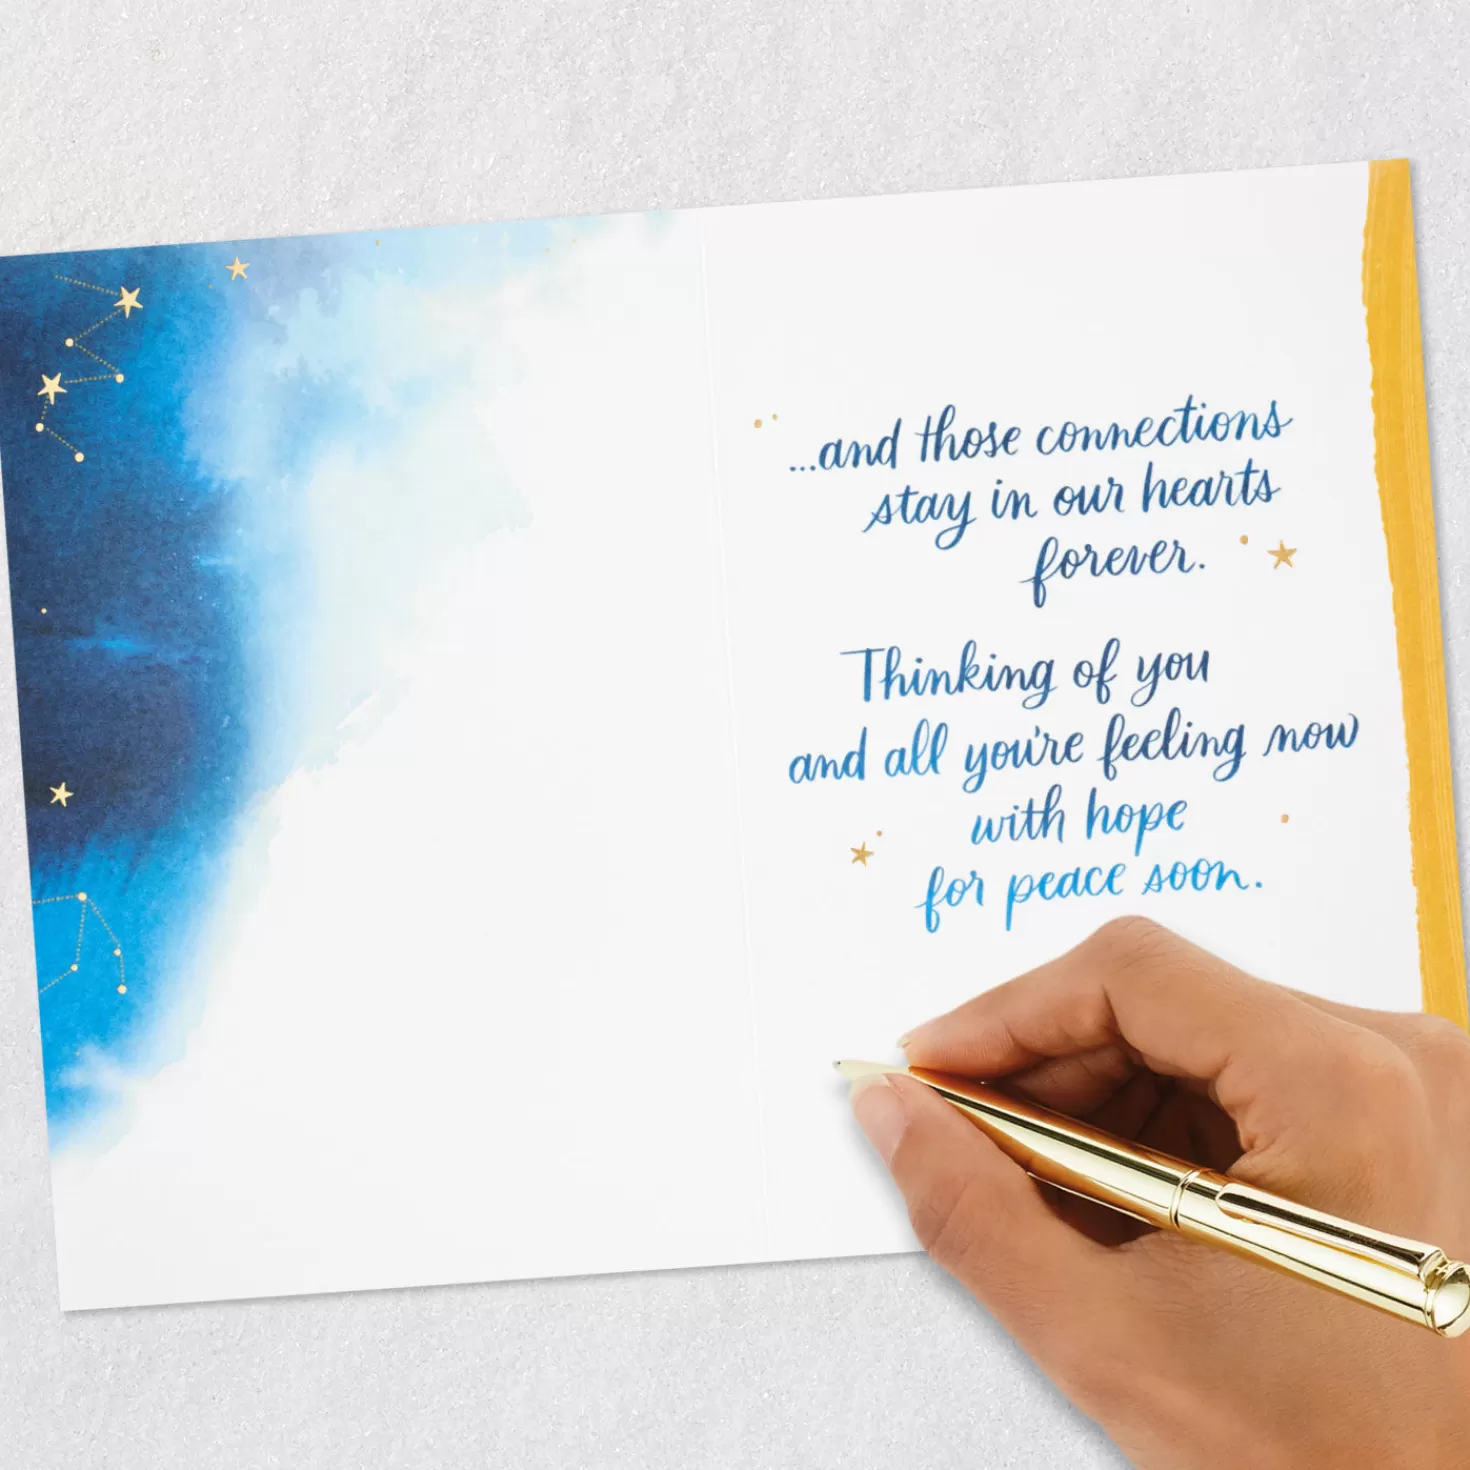 ...and those connections
stay in our hearts
forever.
Thinking of you
and all you're feeling now
with hope
for peace soon.